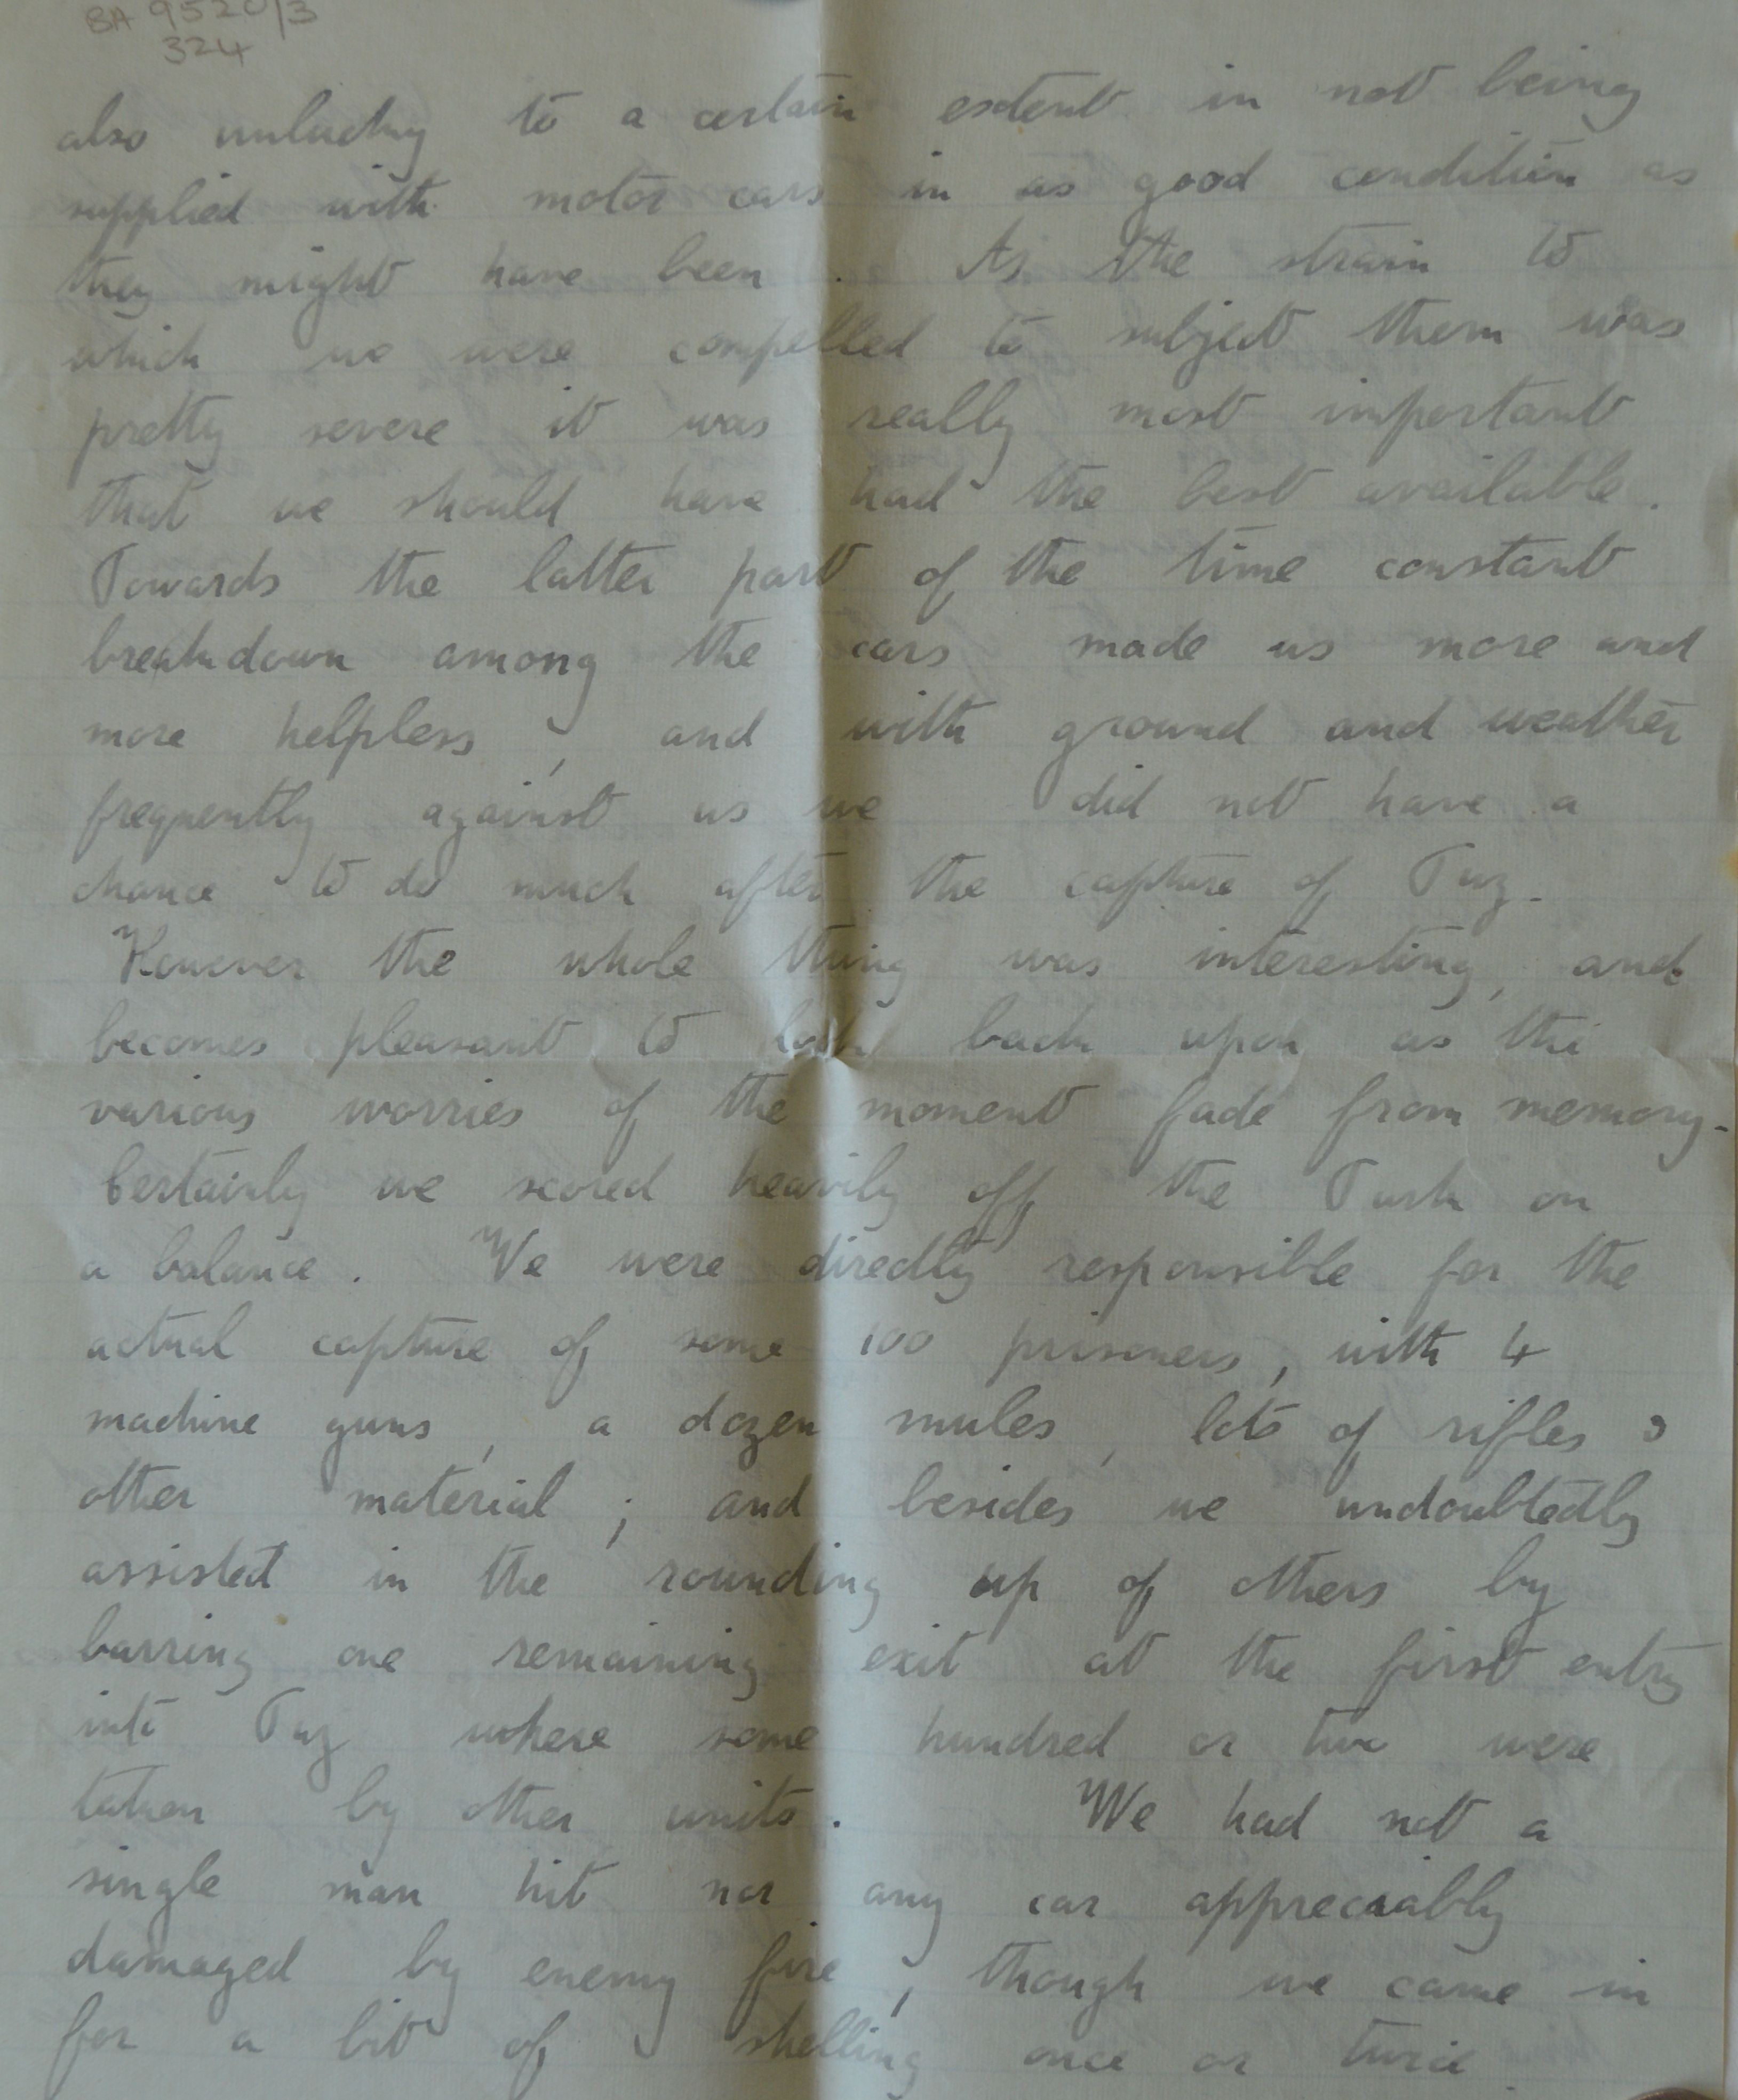 BA 9520/3
324
also unlucky to a certain extent in not being
supplied with motor cars in as good condition as
they might have been. As the strain to
which we were compelled to subject them was
pretty severe it was really most important
that we should have had the best available.
Towards the latter part of the time constant
breakdown among the cars made us more and
more helpless, and with ground and weather
frequently against us we did not have a
chance to do much after the capture of Tuz.
However the whole thing was interesting, and
becomes pleasant to look back upon as the
various worries of the moment fade from memory.
Certainly we scored heavily off the Turk on
a balance. We were directly responsible for the
actual capture of some 100 prisoners, with 4
machine guns, a dozen mules, lots of rifles &
other material; and besides we undoubtedly
assisted in the rounding up of others by
barring one remaining exit at the first entry
into Tuz where some hundred or two were
taken by other units. We had not a
single man hit nor any car appreciably
damaged by enemy fire, though we came in
for a bit of shelling once or twice.